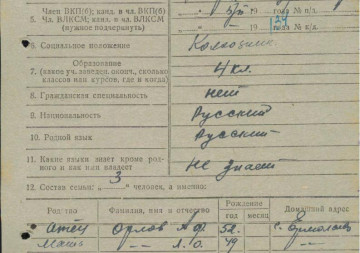 Член ВКП(б); канд. в чл. ВКП(б)
5. Чл. ВЛКСМ; канд. в чл. ВЛКСМ
(нужное подчеркнуть)
года № п/д.
-19 24 года № к/д.
6. Социальное положение Колхозник
7. Образование
(какие уч. заведен. оконч., сколько классов или курсов, где и когда) 4 кл.
8. Гражданская специальность нет
9. Национальность Русский
10. Родный язык Русский
11. Какие языки знает кроме родного и как ими владеет Не знает
12. Состав семьи: „ 3 “ человек, а именно:
Родство Фамилия, имя и отчество Рождение год месяц Домашний адрес
отец Орлов А. Ф. 52
мать -"- 49